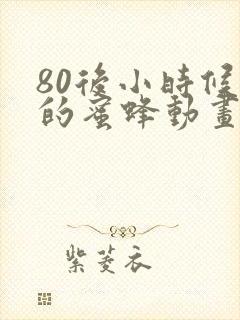 80後小時候
的蜜蜂動畫
紫菱衣